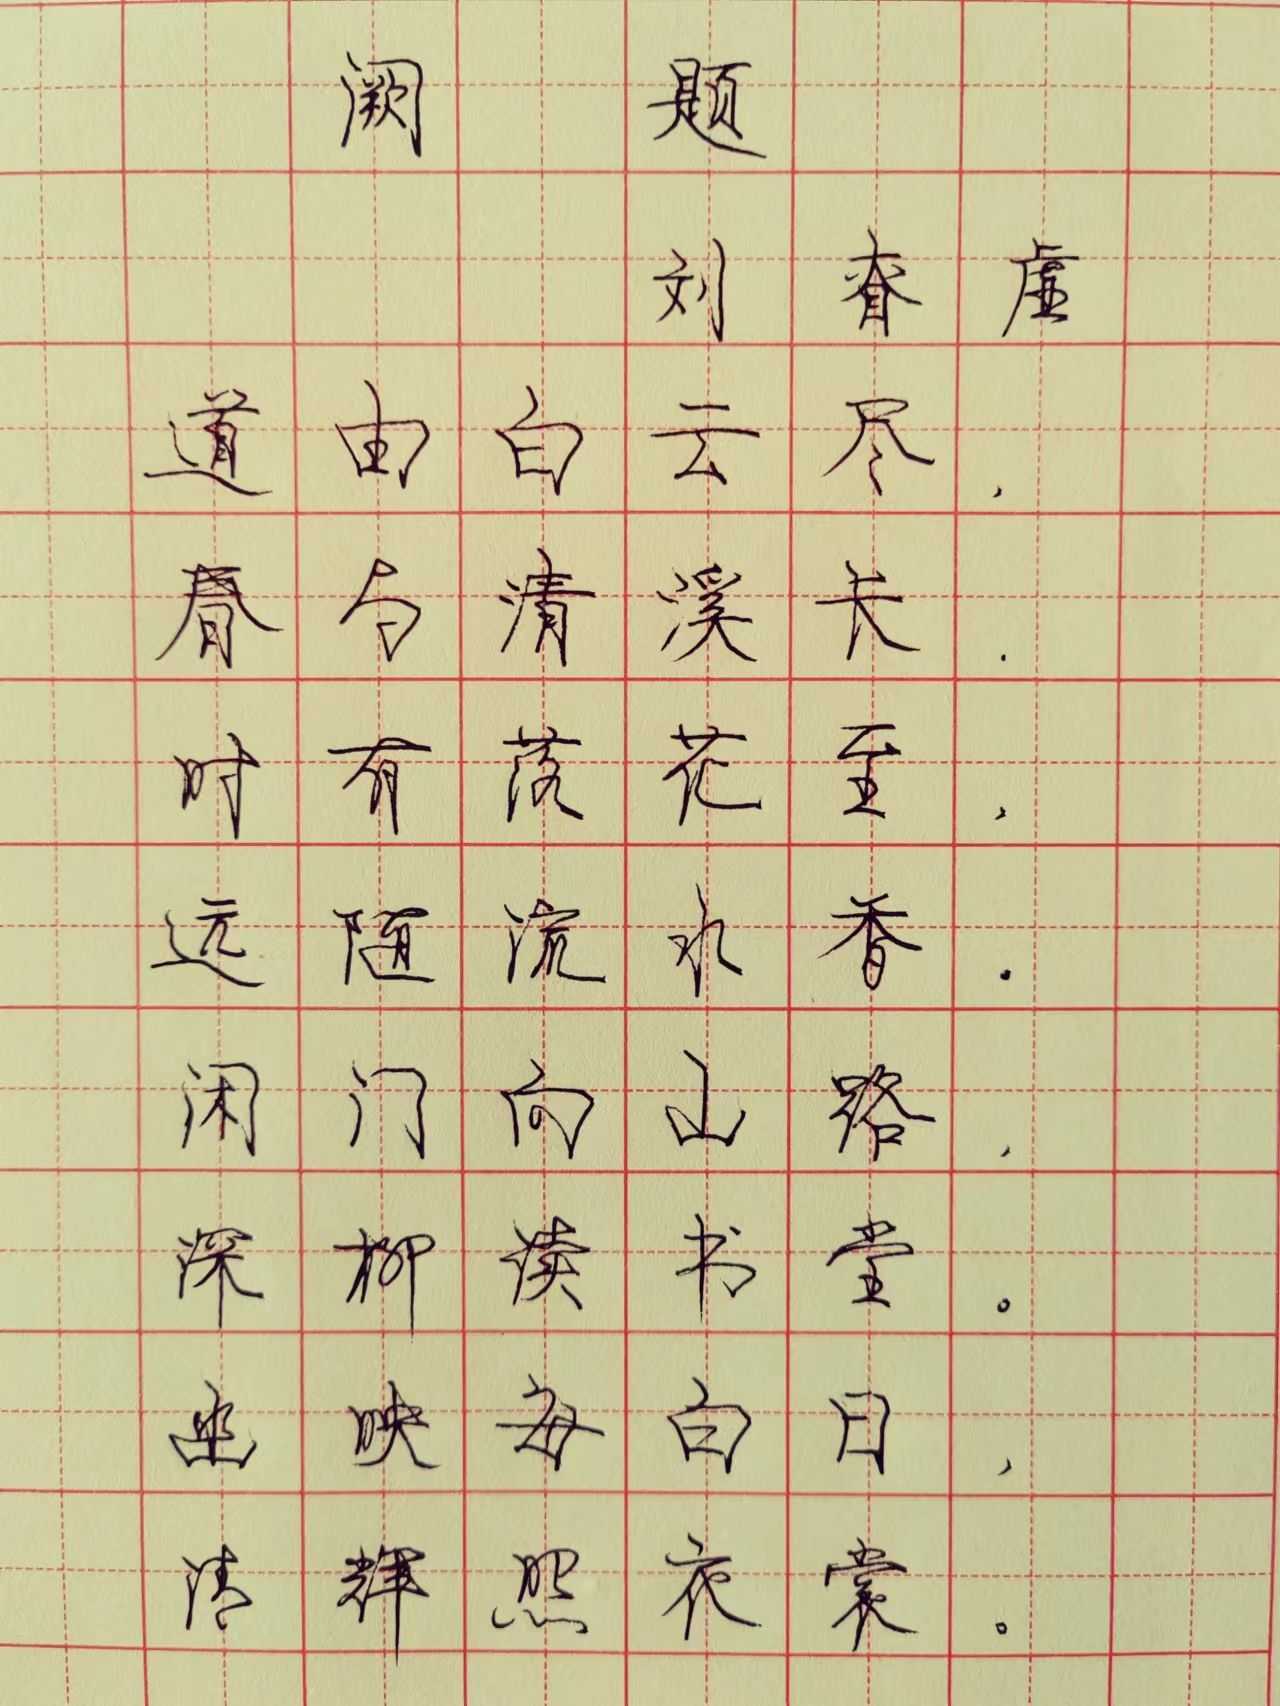 阙题
刘眘虚
道由白云尽，
春与清溪长.
时有落花至，
远随流水香.
闲门向山路，
深柳读书堂。
幽映每白日，
清辉照衣裳。